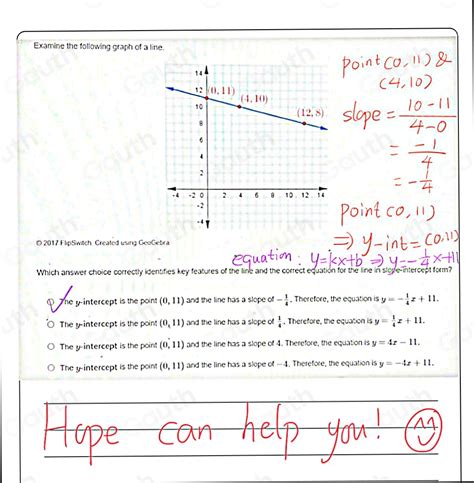 Examine the following graph of a line.
point (0, 11) &
(4, 10)
14
12
10
8
6
4
2
-4 -2 0 2 4 6 8 10 12 14
-2
-4
(0, 11)
(4, 10)
(12, 8)
slope = 10-11 / 4-0
= -1 / 4
= -1/4
point (0, 11)
⇒ y-int = (0, 11)
© 2017 FlipSwitch. Created using GeoGebra.
equation: y=kx+b ⇒ y=-1/4x+11
Which answer choice correctly identifies key features of the line and the correct equation for the line in slope-intercept form?
The y-intercept is the point (0, 11) and the line has a slope of -1/4. Therefore, the equation is y = -1/4x + 11.
The y-intercept is the point (0, 11) and the line has a slope of 1/4. Therefore, the equation is y = 1/4x + 11.
The y-intercept is the point (0, 11) and the line has a slope of 4. Therefore, the equation is y = 4x - 11.
The y-intercept is the point (0, 11) and the line has a slope of -4. Therefore, the equation is y = -4x + 11.
Hope can help you!